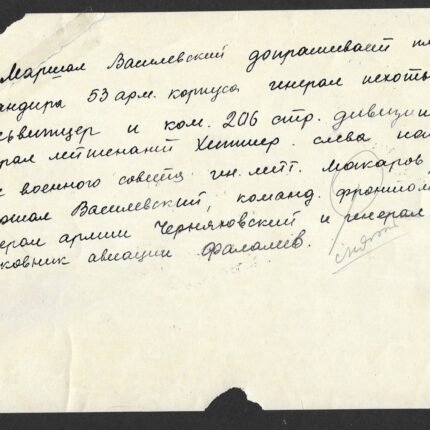 Маршал Василевский допрашивает пл
андира 53 арм. корпуса генерал пехоты
львитцер и ком. 206 стр. дивизии
рал лейтенант Хиттер. слева на
военного совета ген. лейт. Макаров
ршал Василевский, команд. фронтом
ерал армии Черняховский и генерал
ковник авиации Фалалеев.